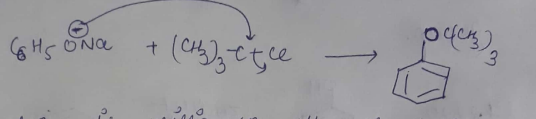 C6H5 O⊖Na + (CH3)3-C-Cl ⟶ OC(CH3)3